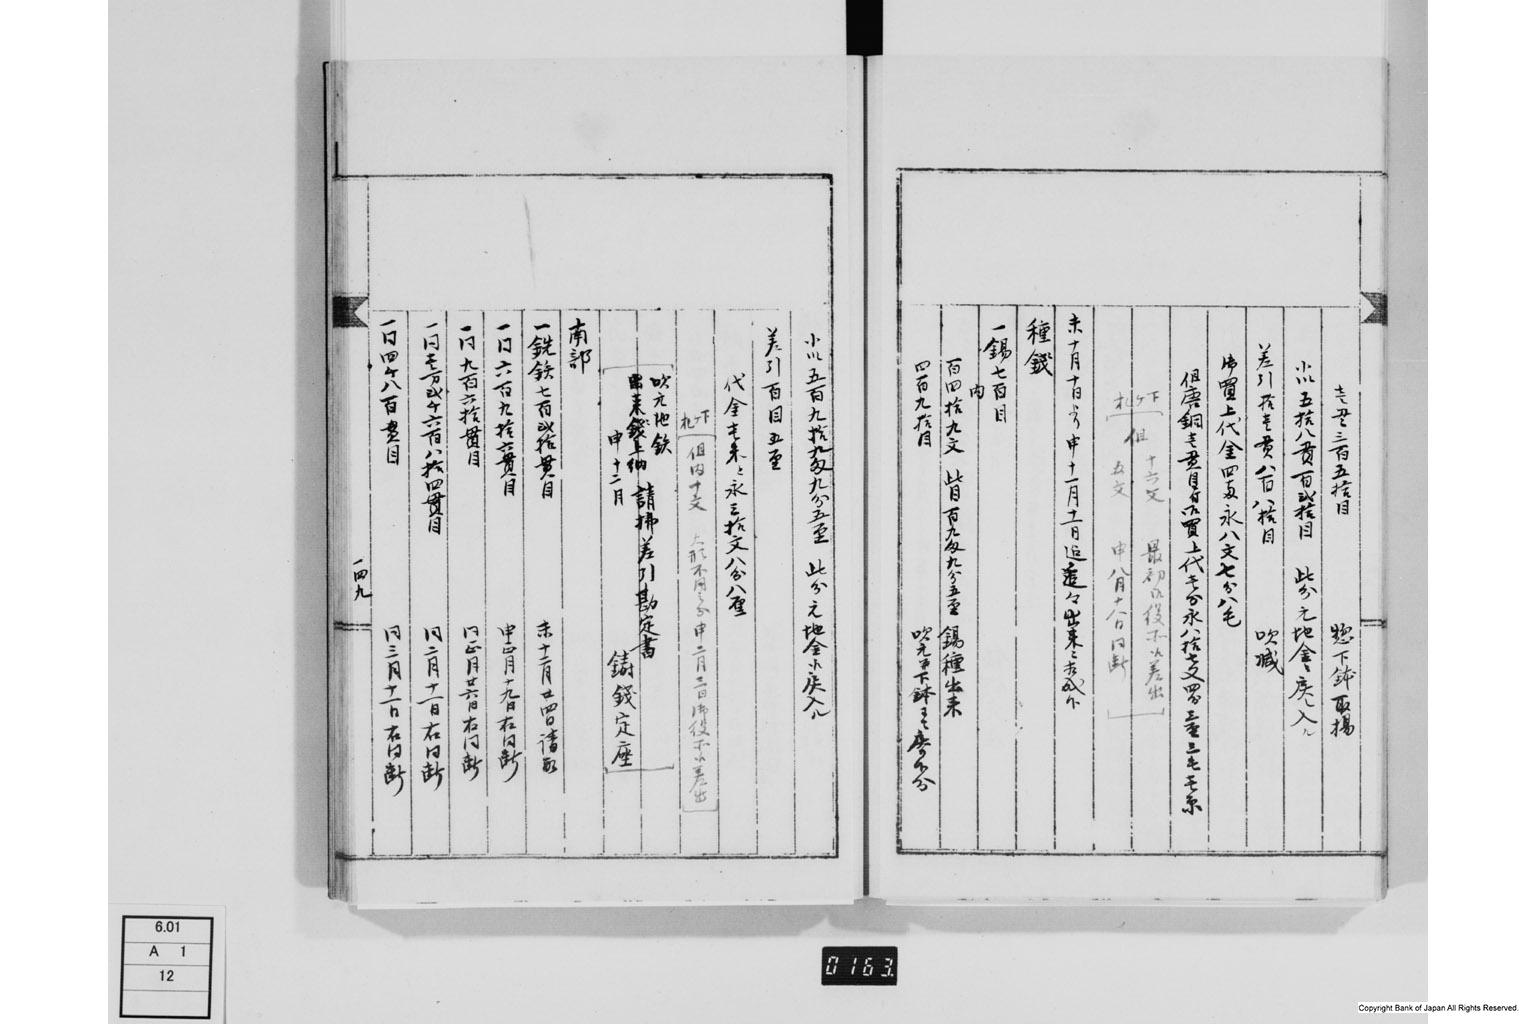 壱貫三百五拾目　惣下鉢取揚
小以五拾八貫百弐拾目　此分元地金ニ戻入ル
差引拾壱貫八百八拾目　吹減
御買上代金四両永八文七分八毛
但唐銅壱貫目ニ付御買上代壱分永八拾七文四分三厘三毛壱糸
下ケ札
但　十六文　最初御役所江差出
五文　申八月十八日同断
未十月十日ゟ申十一月十一日迄追々出来之書成ル
種銭
一錫七百目
内
百四拾九文　此目百九匁九分五厘　錫種出来
四百九拾目　吹元並下鉢
小以五百九拾九匁九分五厘　此分元地金江戻入ル
差引百目五厘
代金壱朱ト永三拾文八分八厘
下ケ札
但内十文　大形不用之分申二月三日御役所江差出
吹元地鉄
出来銭上納　請払差引勘定書
申十二月　鋳銭定座
南部
一銑鉄七百弐拾貫目　未十二月廿四日請取
一同六百九拾六貫目　申正月十九日右同断
一同九百六拾貫目　同正月廿六日右同断
一同壱万弐千六百八拾四貫目　同二月十一日右同断
一同四千八百貫目　同三月十一日右同断
一四九
6.01
A　1
12
0163
Copyright Bank of Japan All Rights Reserved.